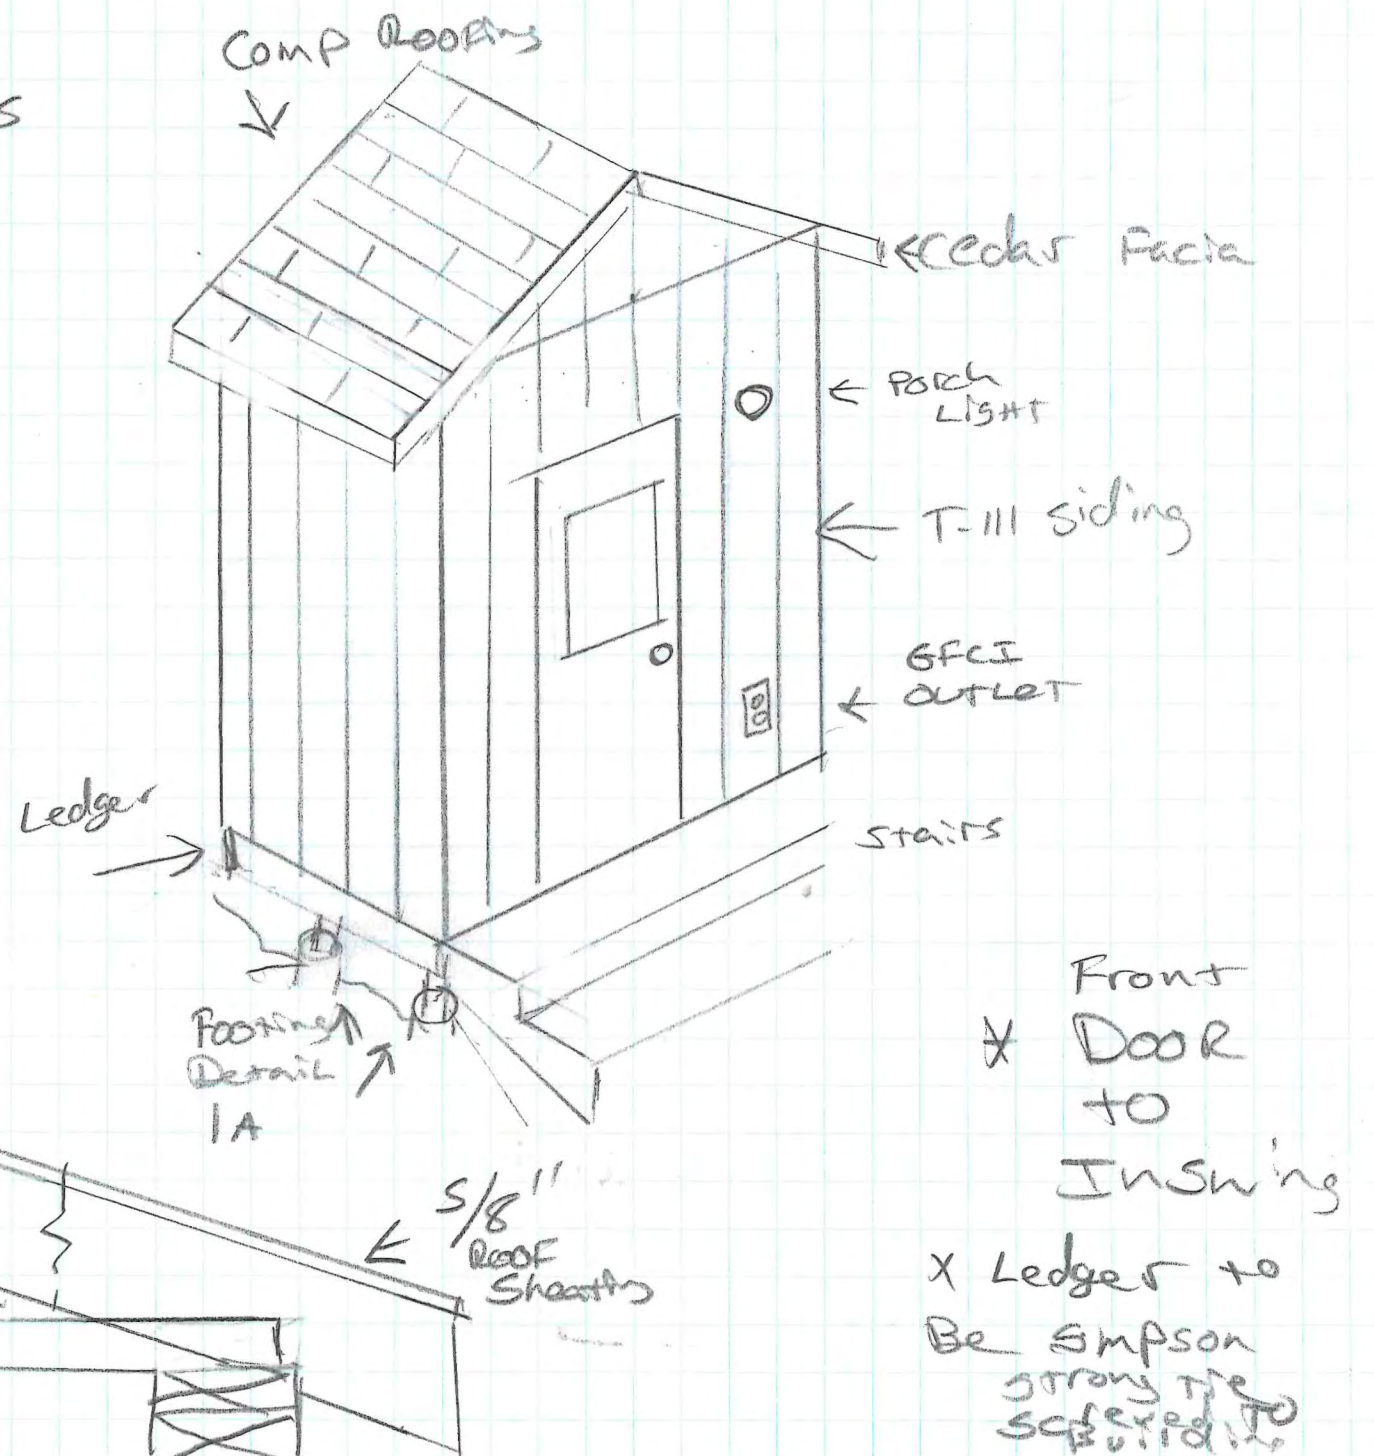 Comp Roofing
s
Cedar Facia
Porch
Light
T-111 siding
GFCI
OUTLET
Ledger
Stairs
Footing
Detail
1A
Front
* Door
to
Inswing
5/8"
Roof
Sheathg
x Ledger to
Be Simpson
strong Tie
TO